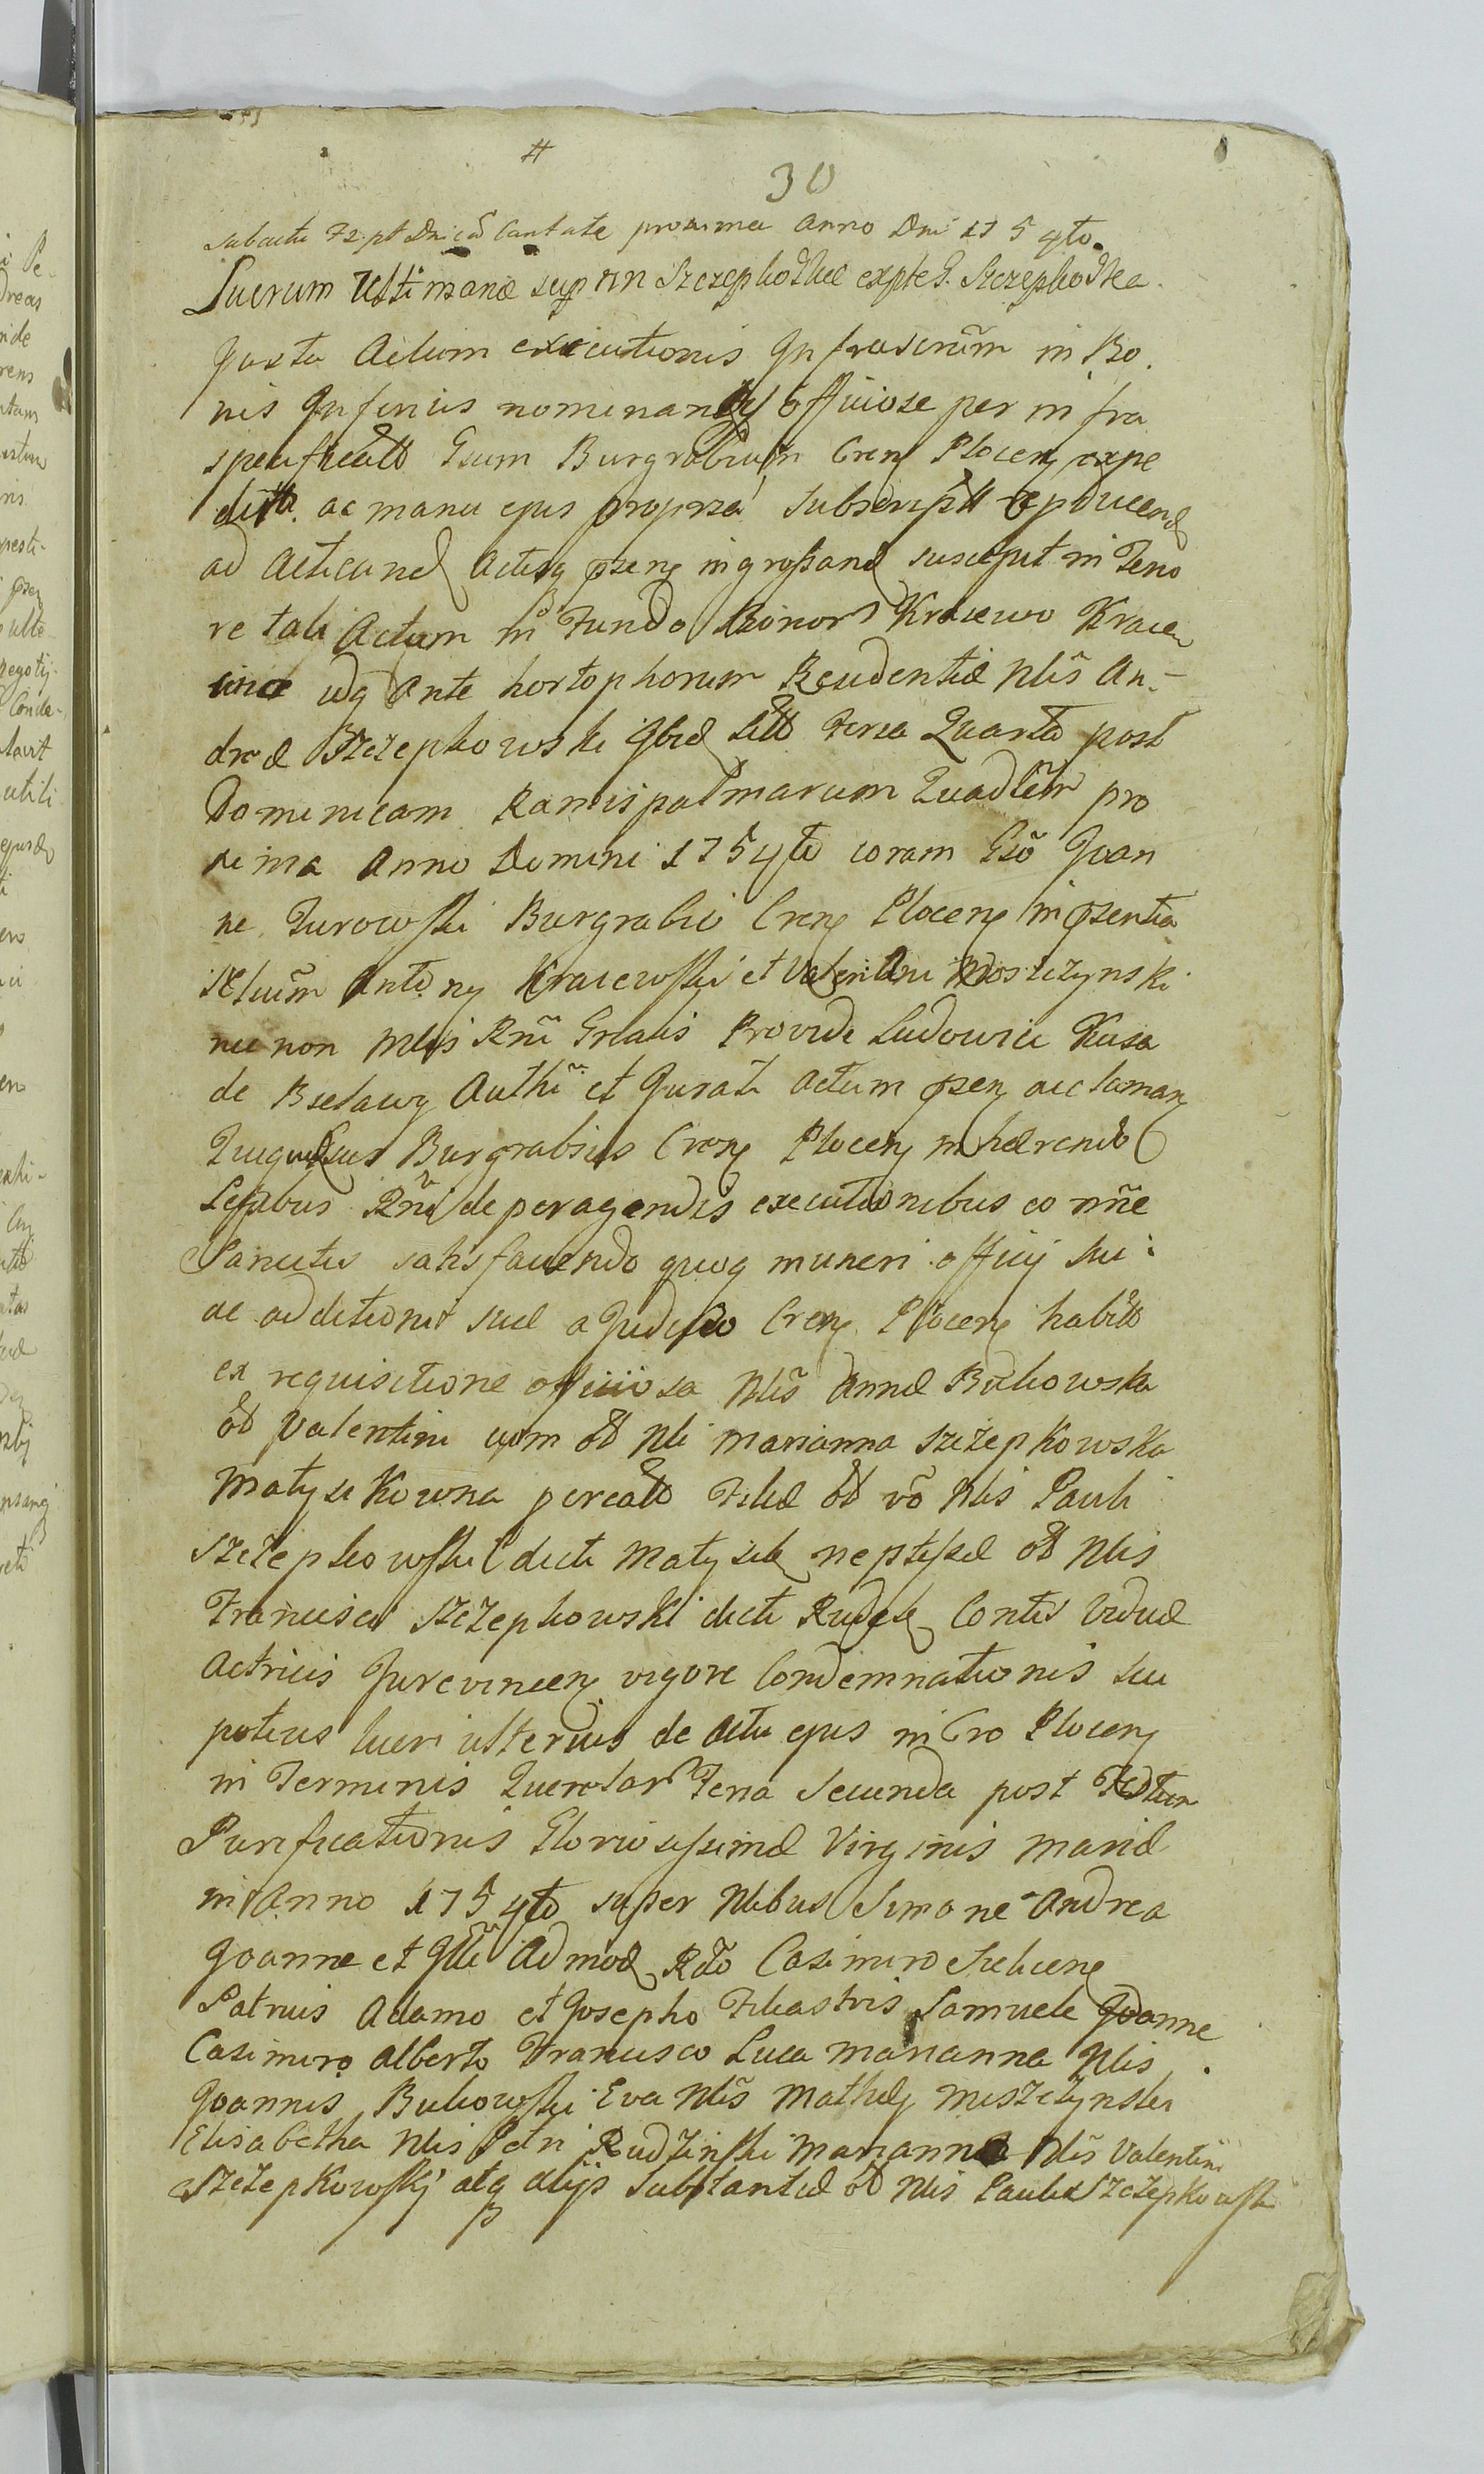 30
Sabatho 72 pt Dnicã Cantate proxima Anno Dni 175 4to
Lucrum Ultimaria sup NN Szczepkowskie expte G. Szczepkowska
Juxta Actum executionis Infrascriũm in Bo
nis Inferius nominandis officiose per infra
specificatto Gsum Burgrabium Cren Plocen expe
ditto ac manu ejus propria subscriptt reproducend
ad Acticand Actisq pzens ingrossand suscepit in Teno
re tali Actum in Fundo Bonor Krasewo Kracen
udq Ante hortophorum Residentiæ Nlis An-
dreæ Szczepkowski Ibid sitto Feria Quarta post
Dominicam Ramispalmarum Quadlem pro
xima Anno Domini 175 4to coram Gsõ Joan
ne Turowski Burgrabio Cren Plocen in pzentia
Nlium Antony Kraiewski et Valentini Moszczynski
nec non Mlis Rni Gnalis Providi Ludovici Kusa
de Bielawy Authi et Jurati Actum pzen aclaman
Quiquidem Burgrabius Cren Plocen inhærendo
Legibus Rni de peragendis executionibus eo nñe
Sancitis satisfaciendo quoq muneri officij sui
ac additioni suæ a Judicio Cren Plocen habitto
ex requisitione officiosa Nlis Annæ Bukowska
ôd Valentini uom ôd Nli Marianna Szczepkowska
Matysikowna pereatto Filiæ ôd võ Nlis Pauli
Szczepkowski dicti Matysik neptissæ ôd Nlis
Francisci Szczepkowski dicti Rudek Contis Viduæ
Actricis Jurevincen vigore Condemnationis seu
potius lucri ulterius de Actu ejus in Cro Plocen
in Terminis Querelar Feria Secunda post Festum
Purificationis Gloriosissimæ Virginis Mariæ
in Anno 175 4to super Nlibus Simone Andrea
Joanne et Illi Admod Rdo Casimiro
Patruis Adamo et Josepho Filiastris Samuele Joanne
Casimiro Alberto Francisco Luca Marianna Nlis
Joannis Bukowski Eva Nlis Mathiæ Moszczynski
Elisabetha Nlis Petri Rudzinski Marianna Nlis Valentini
Szczepkowskj atq alijs Substantiæ ôd Nlis Pauli Szczepkowski